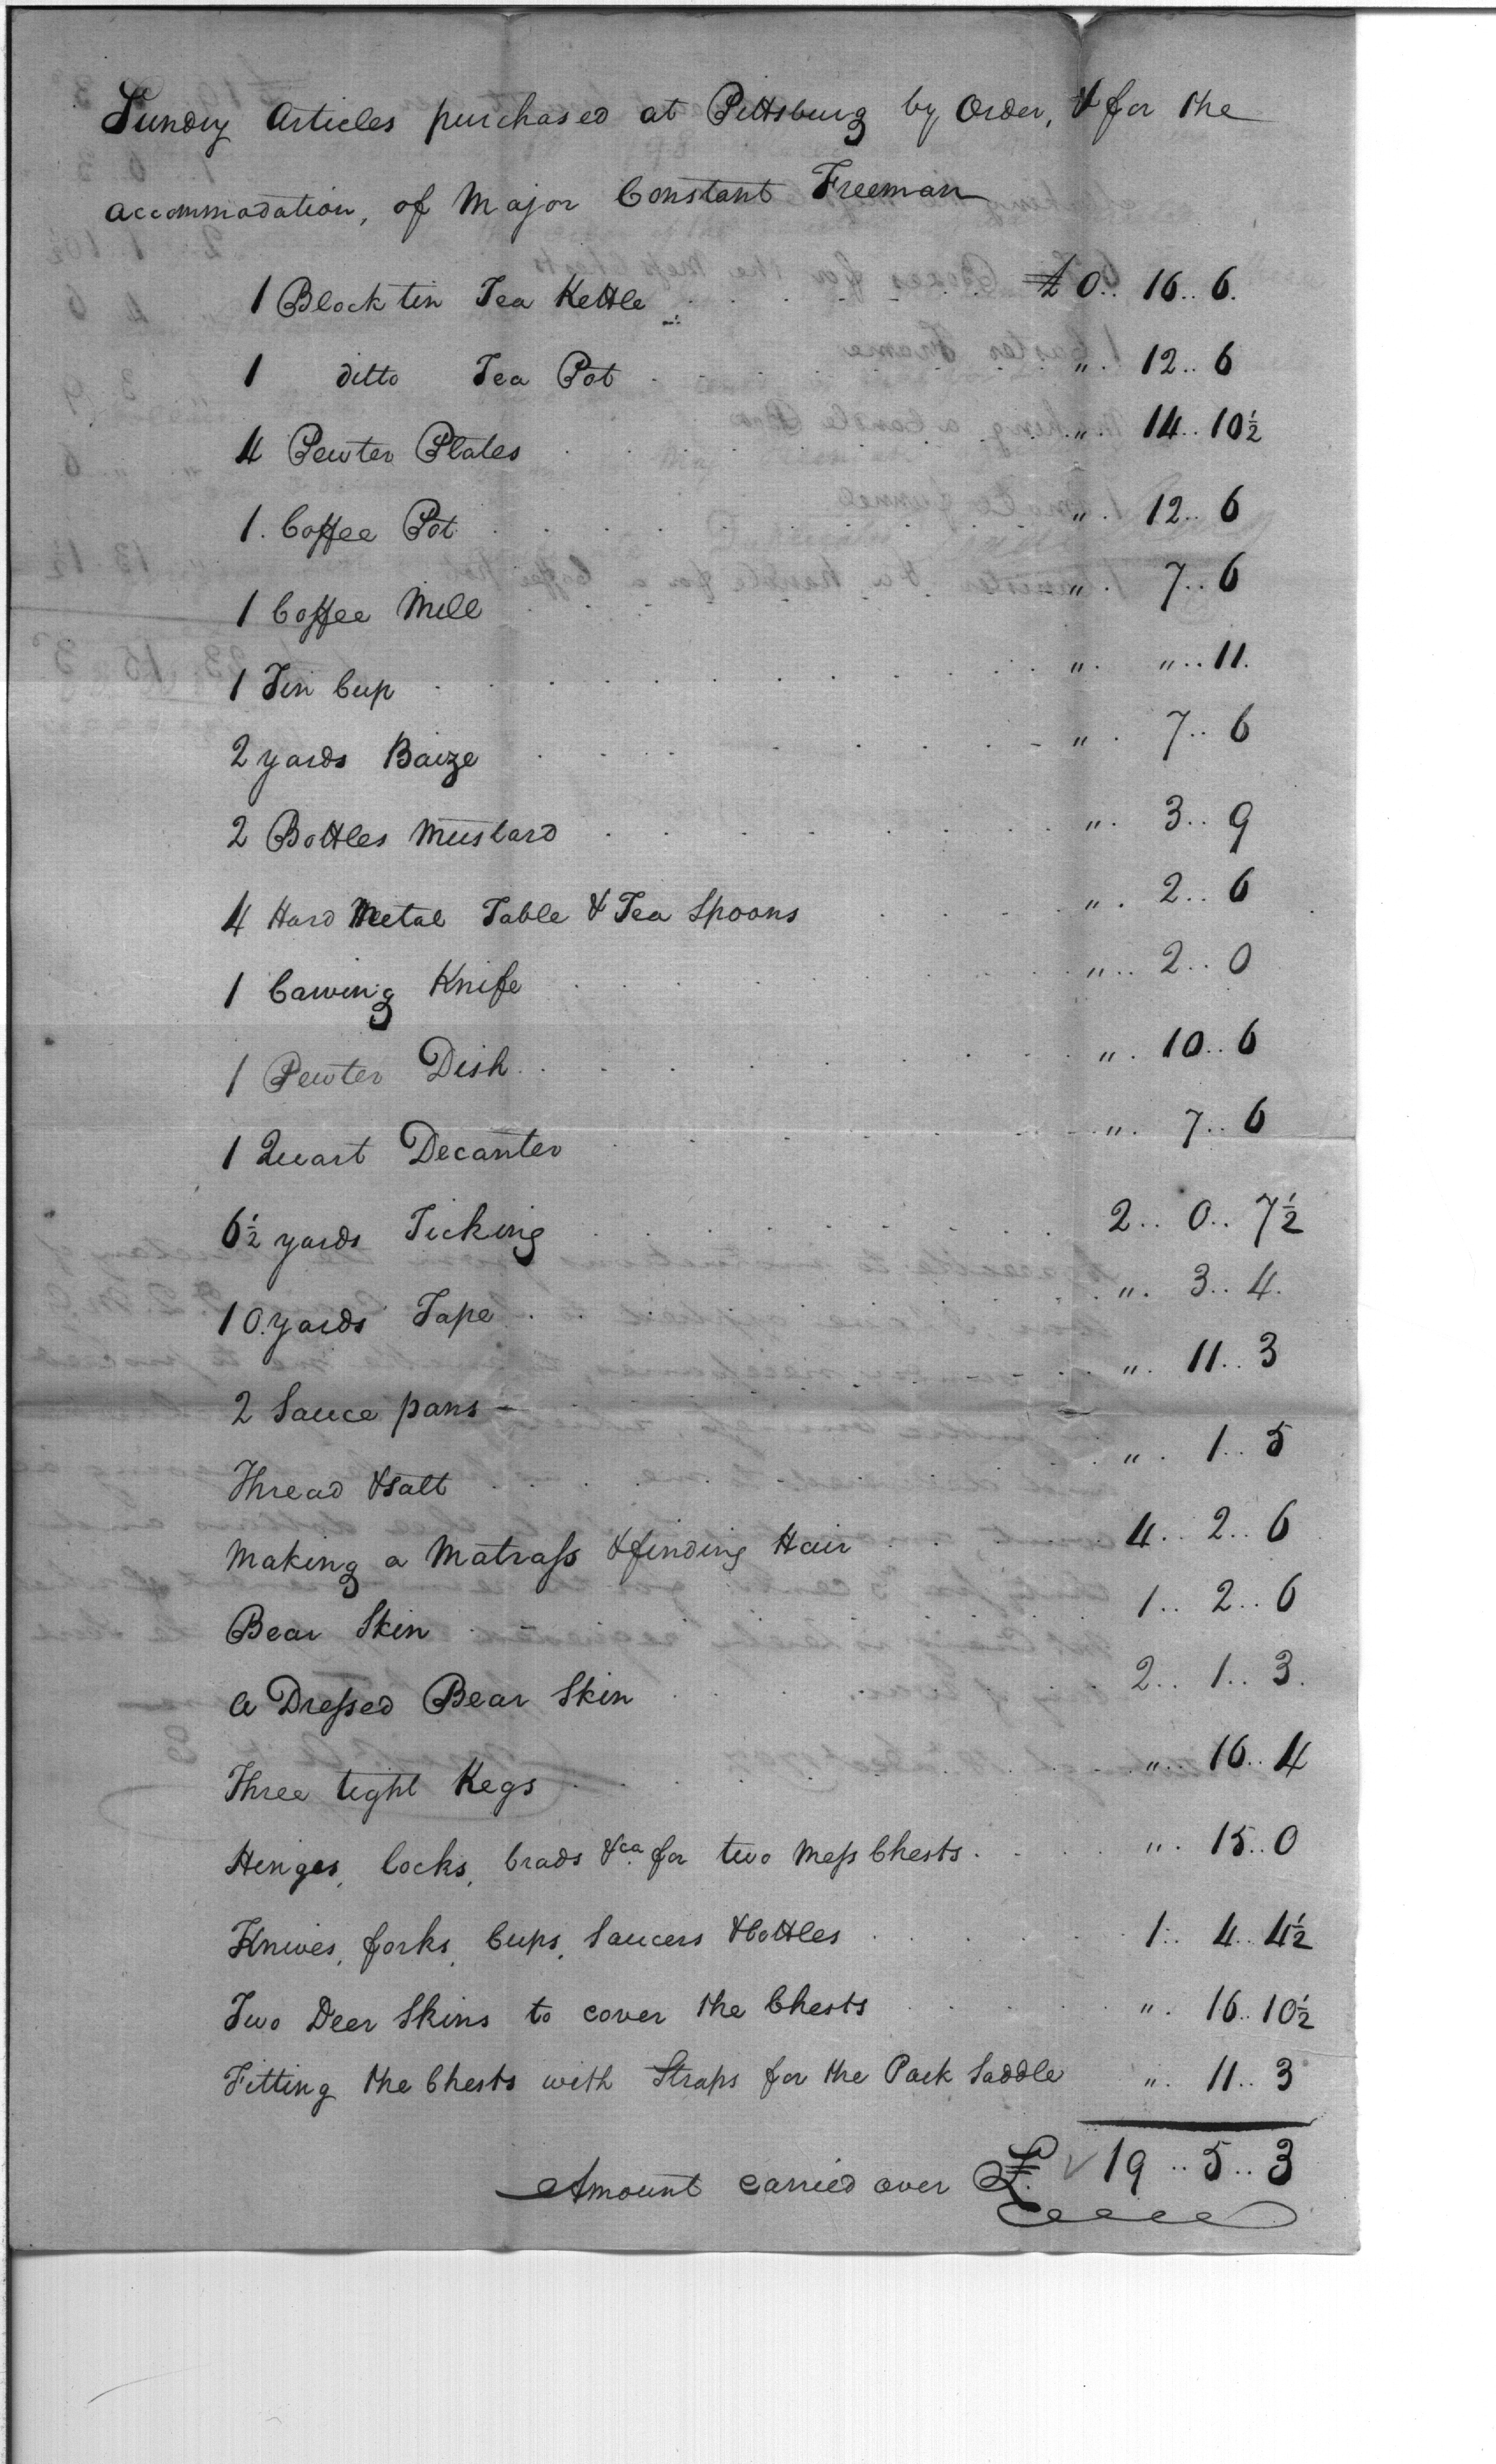 Sundry Articles purchased at Pittsburg by Order, & for the
accommodation, of Major Constant Freeman
1 Block tin Tea Kettle . . . £ 0.. 16.. 6.
1 ditto Tea Pot . . . " . 12.. 6
4 Pewter Plates . . . " . 14.. 10½
1. Coffee Pot . . . " . 12.. 6
1 Coffee Mill . . . " . 7.. 6
1 Tin Cup . . . " . " .. 11.
2 yards Baize . . . " . 7.. 6
2 Bottles Mustard . . . " . 3.. 9
4 Hard Metal Table & Tea Spoons . . . " . 2.. 6
1 Carving Knife . . . " .. 2.. 0
1 Pewter Dish . . . " . 10.. 6
1 Quart Decanter . . . " . 7.. 6
6½ yards Ticking . . . 2.. 0.. 7½
10 yards Tape . . . " . 3.. 4.
2 Sauce pans . . . " . 11.. 3
Thread & Salt . . . " . 1.. 5
Making a Matrass & finding Hair . . . 4.. 2.. 6
Bear Skin . . . 1.. 2.. 6
a Dressed Bear Skin . . . 2.. 1.. 3.
Three tight Kegs . . . " . 16.. 4
Hinges, locks, brads &ca for two Mess Chests . . . " . 15.. 0
Knives, forks, Cups, Saucers & bottles . . . 1.. 4.. 4½
Two Deer Skins to cover the Chests . . . " . 16.. 10½
Fitting the Chests with Straps for the Pack Saddle " . 11.. 3
Amount carried over £. 19.. 5.. 3